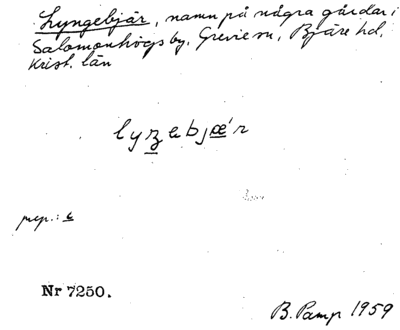 Lyngebjär, namn på några gårdar i
Salomonhögs by, Grevie sn, Bjäre hd,
Krist. län
lyzebjæ´r
prep.: i
Nr 7250.
B. Pamp 1959